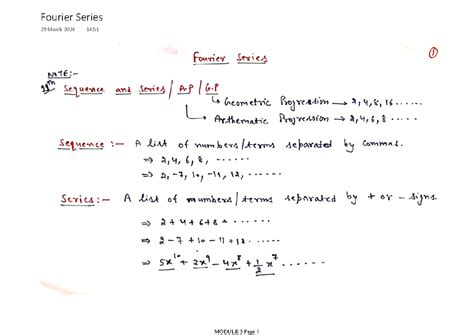 Fourier Series
29 March 2024 14:51
Fourier Series
①
NOTE:-
11th Sequence and Series / A.P / G.P
Geometric Progression → 2, 4, 8, 16 ......
Arthematic Progression → 2, 4, 6, 8 .....
Sequence :- A list of numbers/terms separated by commas.
⇒ 2, 4, 6, 8, ......
⇒ 2, -7, 10, -11, 12, ......
Series :- A list of numbers/terms separated by + or - signs
⇒ 2 + 4 + 6 + 8 + ......
⇒ 2 - 7 + 10 - 11 + 12 ......
⇒ 5x¹⁰ + 3x⁹ - 4x⁸ + 1/2 x⁷ ......
MODULE 5 Page 1